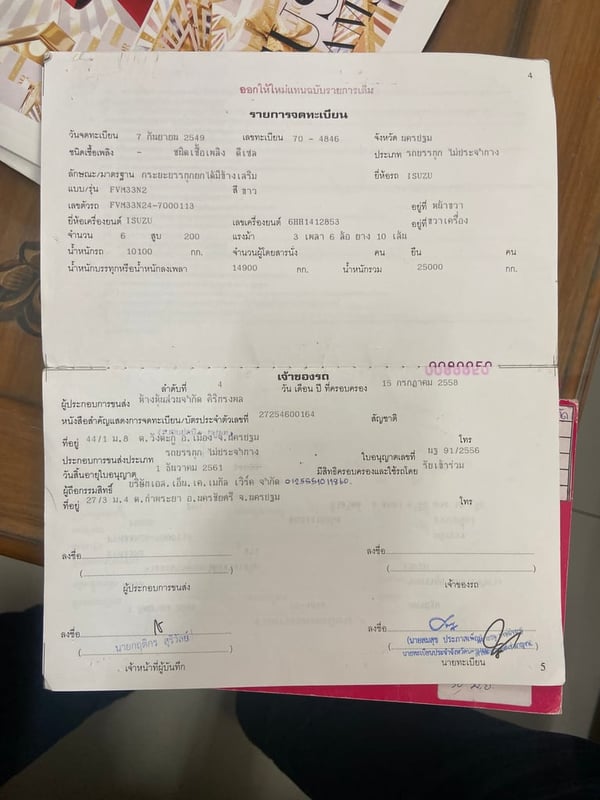 4
ออกให้ใหม่แทนฉบับรายการเดิม
รายการจดทะเบียน
วันจดทะเบียน 7 กันยายน 2549 เลขทะเบียน 70 - 4846 จังหวัด นครปฐม
ชนิดเชื้อเพลิง - ชนิดเชื้อเพลิง ดีเซล ประเภท รถบรรทุก ไม่ประจำทาง
ลักษณะ/มาตรฐาน กระบะบรรทุกยกได้มีข้างเสริม ยี่ห้อรถ ISUZU
แบบ/รุ่น FVM33N2 สี ขาว
เลขตัวรถ FVM33N24-7000113 อยู่ที่ หน้าขวา
ยี่ห้อเครื่องยนต์ ISUZU เลขเครื่องยนต์ 6HH1412853 อยู่ที่ ขวาเครื่อง
จำนวน 6 สูบ 200 แรงม้า 3 เพลา 6 ล้อ ยาง 10 เส้น
น้ำหนักรถ 10100 กก. จำนวนผู้โดยสารนั่ง คน ยืน คน
น้ำหนักบรรทุกหรือน้ำหนักลงเพลา 14900 กก. น้ำหนักรวม 25000 กก.
เจ้าของรถ
ลำดับที่ 4 วัน เดือน ปี ที่ครอบครอง 15 กรกฎาคม 2558
ผู้ประกอบการขนส่ง ห้างหุ้นส่วนจำกัด คีริกรงผล
หนังสือสำคัญแสดงการจดทะเบียน/บัตรประจำตัวเลขที่ 27254600164 สัญชาติ
ที่อยู่ 44/1 ม.8 ต.วังตะกู อ.เมือง จ.นครปฐม โทร
ประกอบการขนส่งประเภท รถบรรทุก ไม่ประจำทาง ใบอนุญาตเลขที่ นฐ 91/2556
วันสิ้นอายุใบอนุญาต 1 ธันวาคม 2561 มีสิทธิครอบครองและใช้รถโดย
ผู้ถือกรรมสิทธิ์ บริษัทเอล.เอ็น.เค.เมทัล เวิร์ค จำกัด
ที่อยู่ 27/3 ม.4 ต.ท่าพระยา อ.นครชัยศรี จ.นครปฐม โทร
ลงชื่อ ลงชื่อ
( ) ( )
ผู้ประกอบการขนส่ง เจ้าของรถ
ลงชื่อ ลงชื่อ
( นายกฤติกร สุริวัลย์ ) (นายสมสุข ประภาสเพ็ญ
เจ้าหน้าที่ผู้บันทึก นายทะเบียน
5